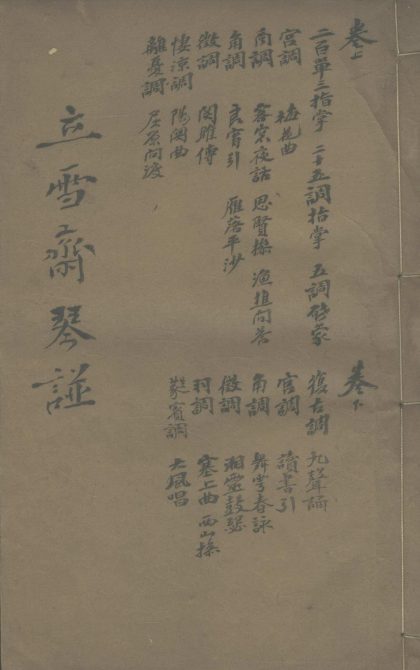 卷上
二百單三指掌 二十五調指掌 五調啓蒙
宮調 梅花曲
商調 客窓夜話 思賢操 漁樵問荅
角調 良宵引 雁落平沙
徵調 関雎傳
悽凉調 陽関曲
離憂調 屈原問渡
卷下
復古調 孔聲誦
宮調 讀書引
角調 舞雩春詠
徵調 湘靈鼓瑟
羽調 塞上曲 西山操
蕤賓調 大風唱
立雪齋琴譜